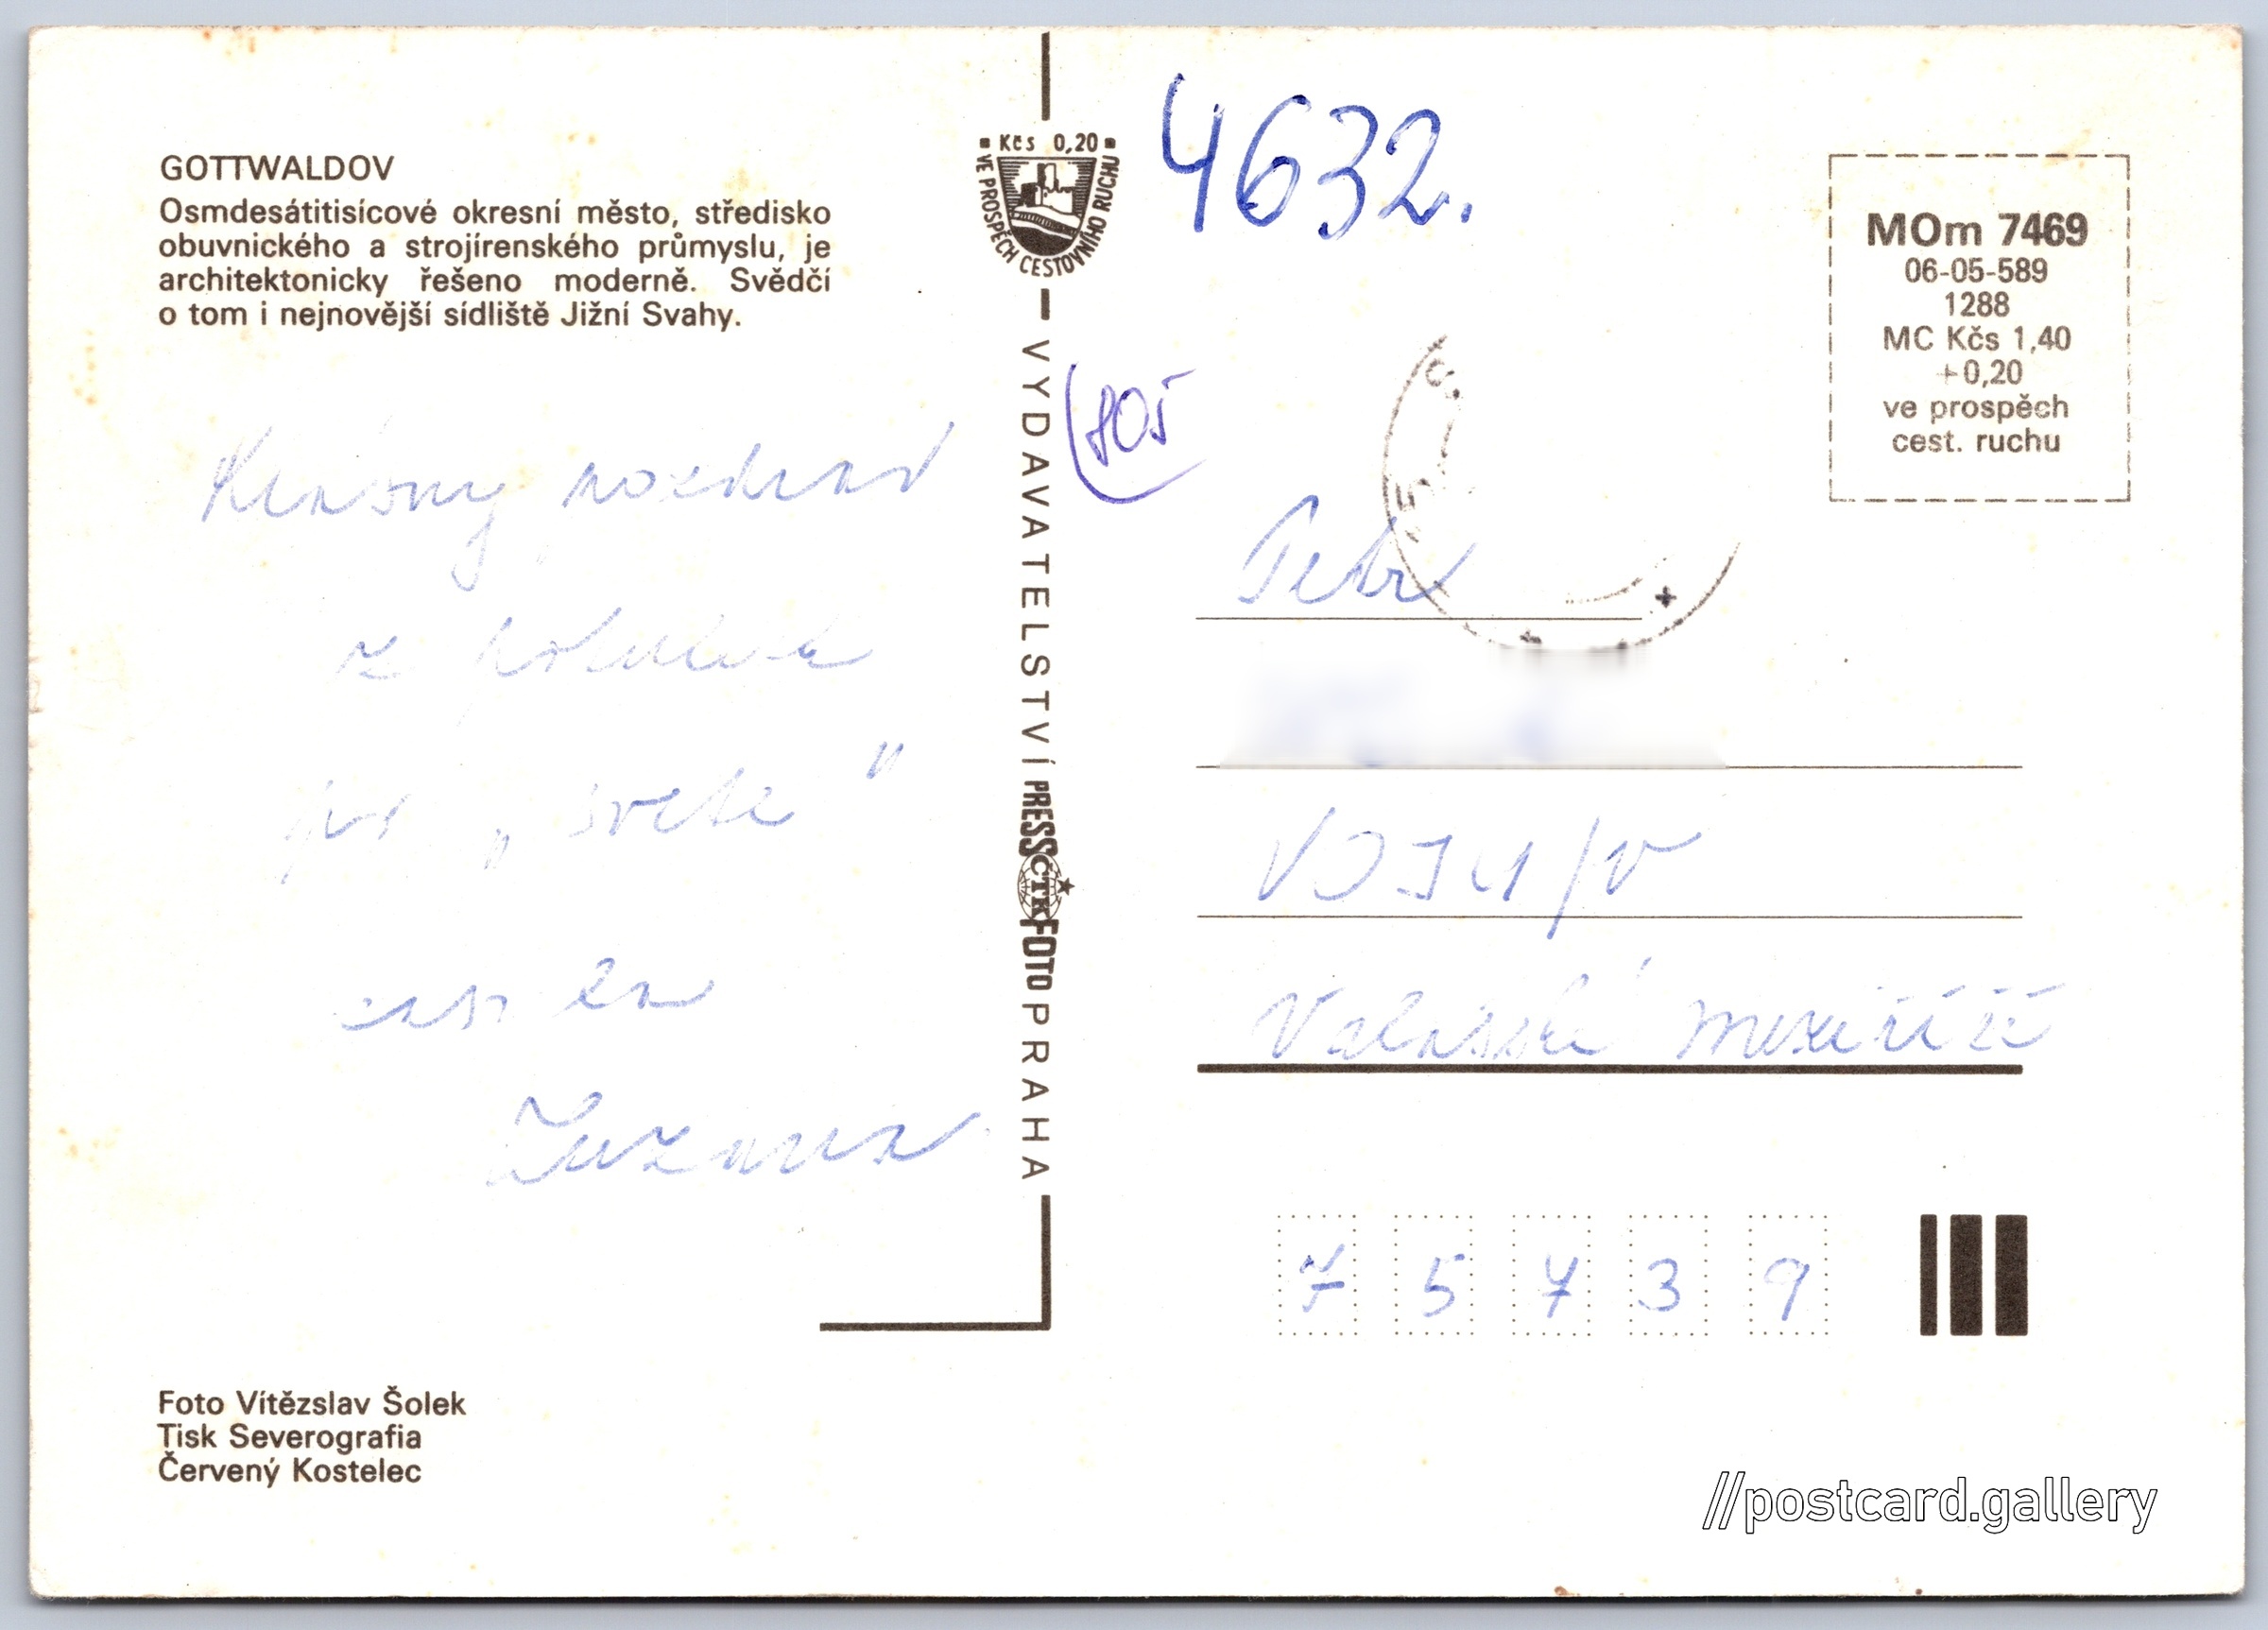 GOTTWALDOV
Osmdesátitisícové okresní město, středisko
obuvnického a strojírenského průmyslu, je
architektonicky řešeno moderně. Svědčí
o tom i nejnovější sídliště Jižní Svahy.
Krásný pozdrav
z
"svete"
Zuzana
Foto Vítězslav Šolek
Tisk Severografia
Červený Kostelec
Kčs 0,20
VE PROSPĚCH CESTOVNÍHO RUCHU
VYDAVATELSTVÍ PRESSFOTO PRAHA
ČTK
4632.
MOm 7469
06-05-589
1288
MC Kčs 1,40
+0,20
ve prospěch
cest. ruchu
Petr
Valašské Meziříčí
75739
//postcard.gallery